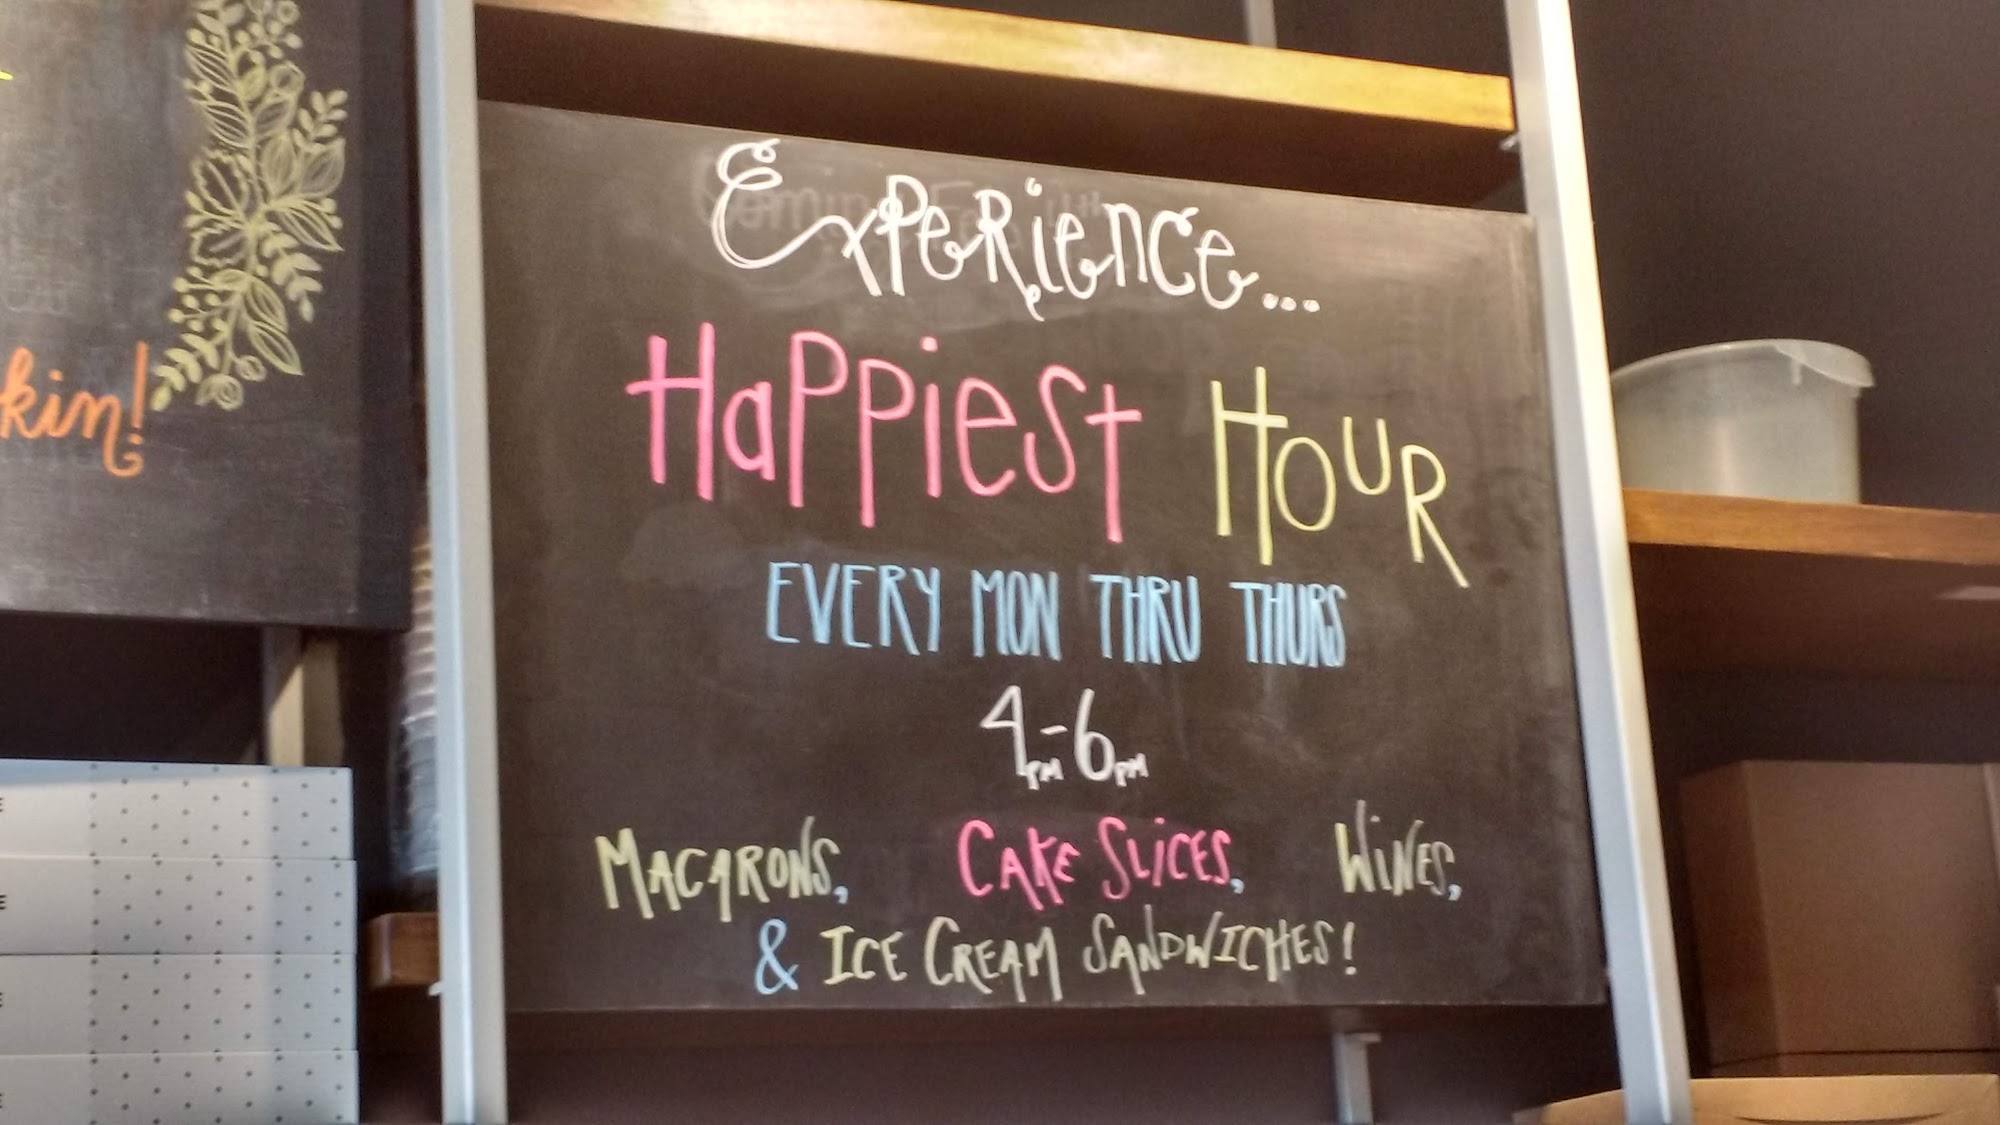 Experience...
Happiest Hour
EVERY MON THRU THURS
4PM-6PM
MACARONS, CAKE SLICES, WINES,
& ICE CREAM SANDWICHES!
kin!